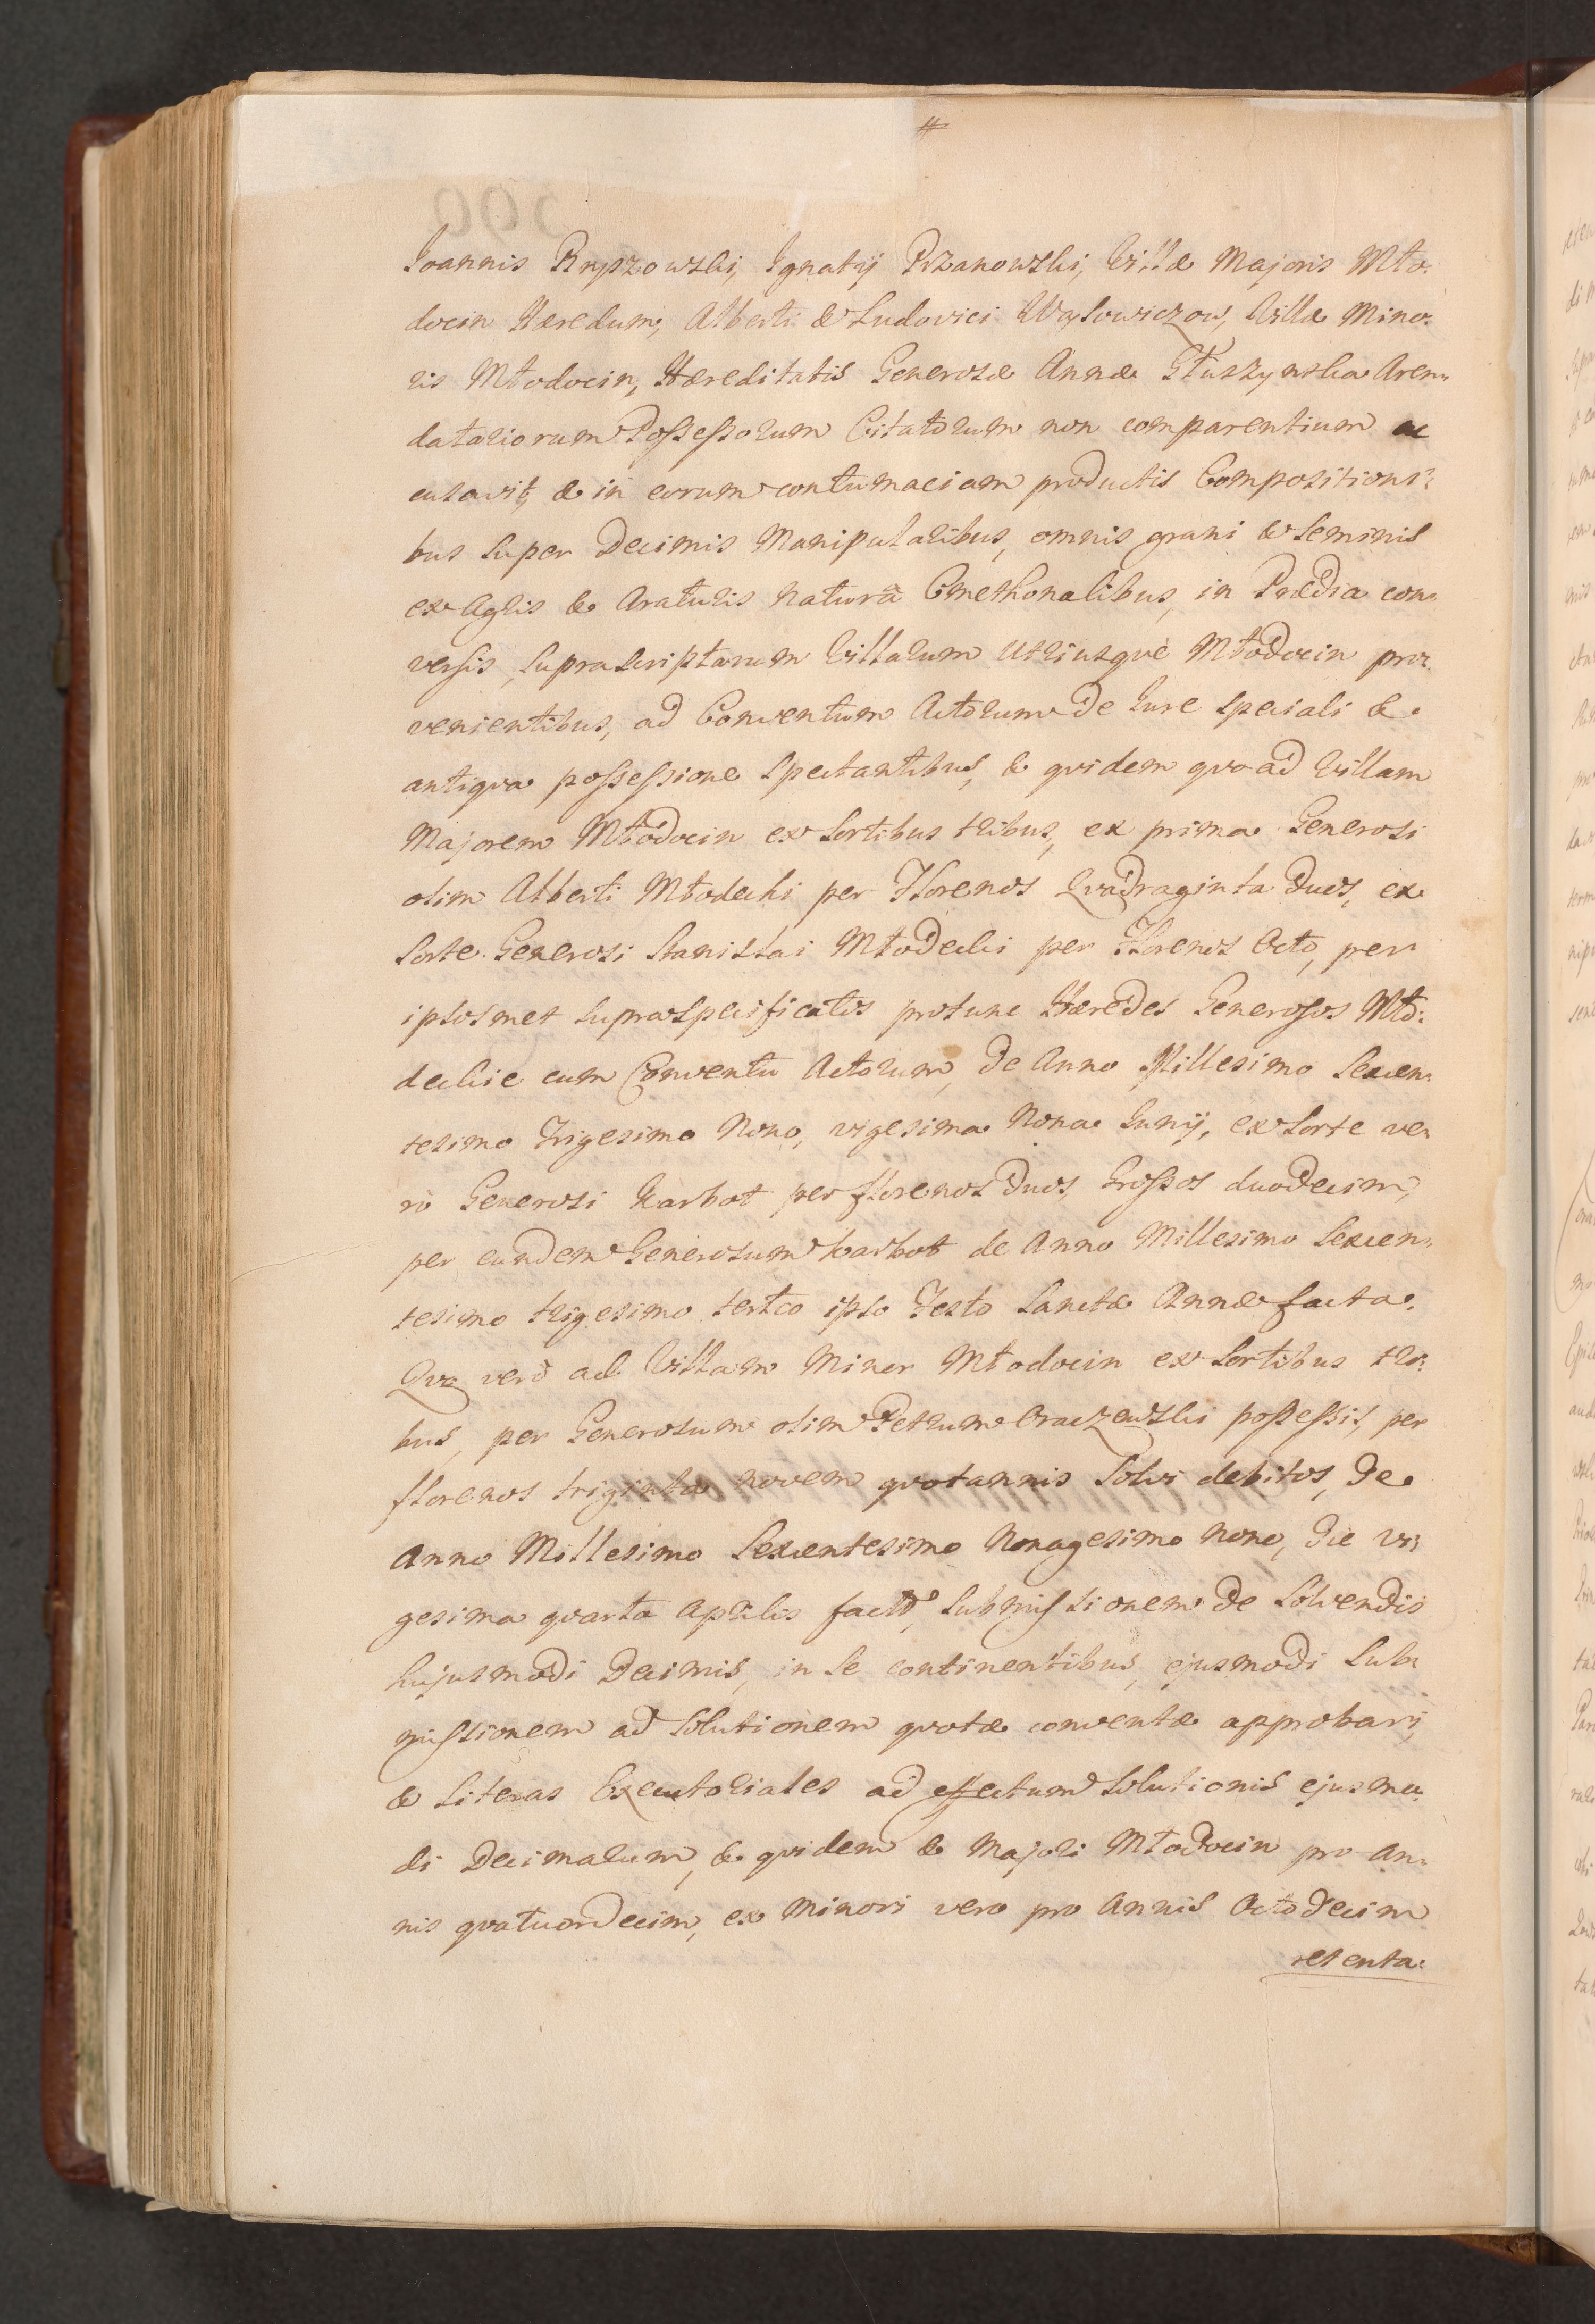 #
Joannis Rypzowski, Ignatij Przanowski, Villæ Majoris Mło:
docin Hæredum, Alberti & Ludovici Wąsowiczow, Villæ Mino:
ris Młodocin, Hæreditatis Generosæ Annæ Głuszynska Aren:
datariorum Possessorum Citatorum non comparentium ac
cusavit, & in eorum contumaciam productis Compositioni:
bus super Decimis Manipularibus, omnis grani & seminis
ex Agris & Araturis Naturâ Cmethonalibus, in Prædia con:
versis, suprascriptarum Villarum Utriusque Młodocin pro:
venientibus, ad Conventum Actorum de Jure speciali &
antiqua possessione spectantibus, & quidem quo ad Villam
Majorem Młodocin ex Sortibus tribus, ex prima Generosi
olim Alberti Młodecki per Florenos Quadraginta Duos, ex
Sorte Generosi Stanislai Młodecki per Florenos Octo, per
ipsosmet supraspecificatos protunc Hæredes Generosos Mło:
deckie cum Conventu Actorum, de Anno Millesimo Sexcen:
tesimo Trigesimo Nono, vigesima Nona Junij, ex Sorte ve:
rò Generosi Karbot per florenos Duos, Grossos duodecim,
per eundem Generosum Karbot de Anno Millesimo Sexcen:
tesimo trigesimo tertio ipso Festo Sanctæ Annæ facta.
Quo verò ad Villam Minor Młodocin ex Sortibus tri:
bus, per Generosum olim Petrum Oraczewski possessis, per
florenos triginta novem quotannis Solvi debitos, de
Anno Millesimo Sexcentesimo Nonagesimo Nono, Die vi:
gesima quarta Aprilis facto, Submissionem de Solvendis
hujusmodi Decimis, in se continentibus, ejusmodi Sub:
missionem ad Solutionem quotæ conventæ approbari,
& Literas Executoriales ad effectum Solutionis ejusmo:
di Decimarum, & quidem & Majori Młodocin pro An:
nis quatuordecim, ex Minori vero pro Annis Octodecim
retenta: